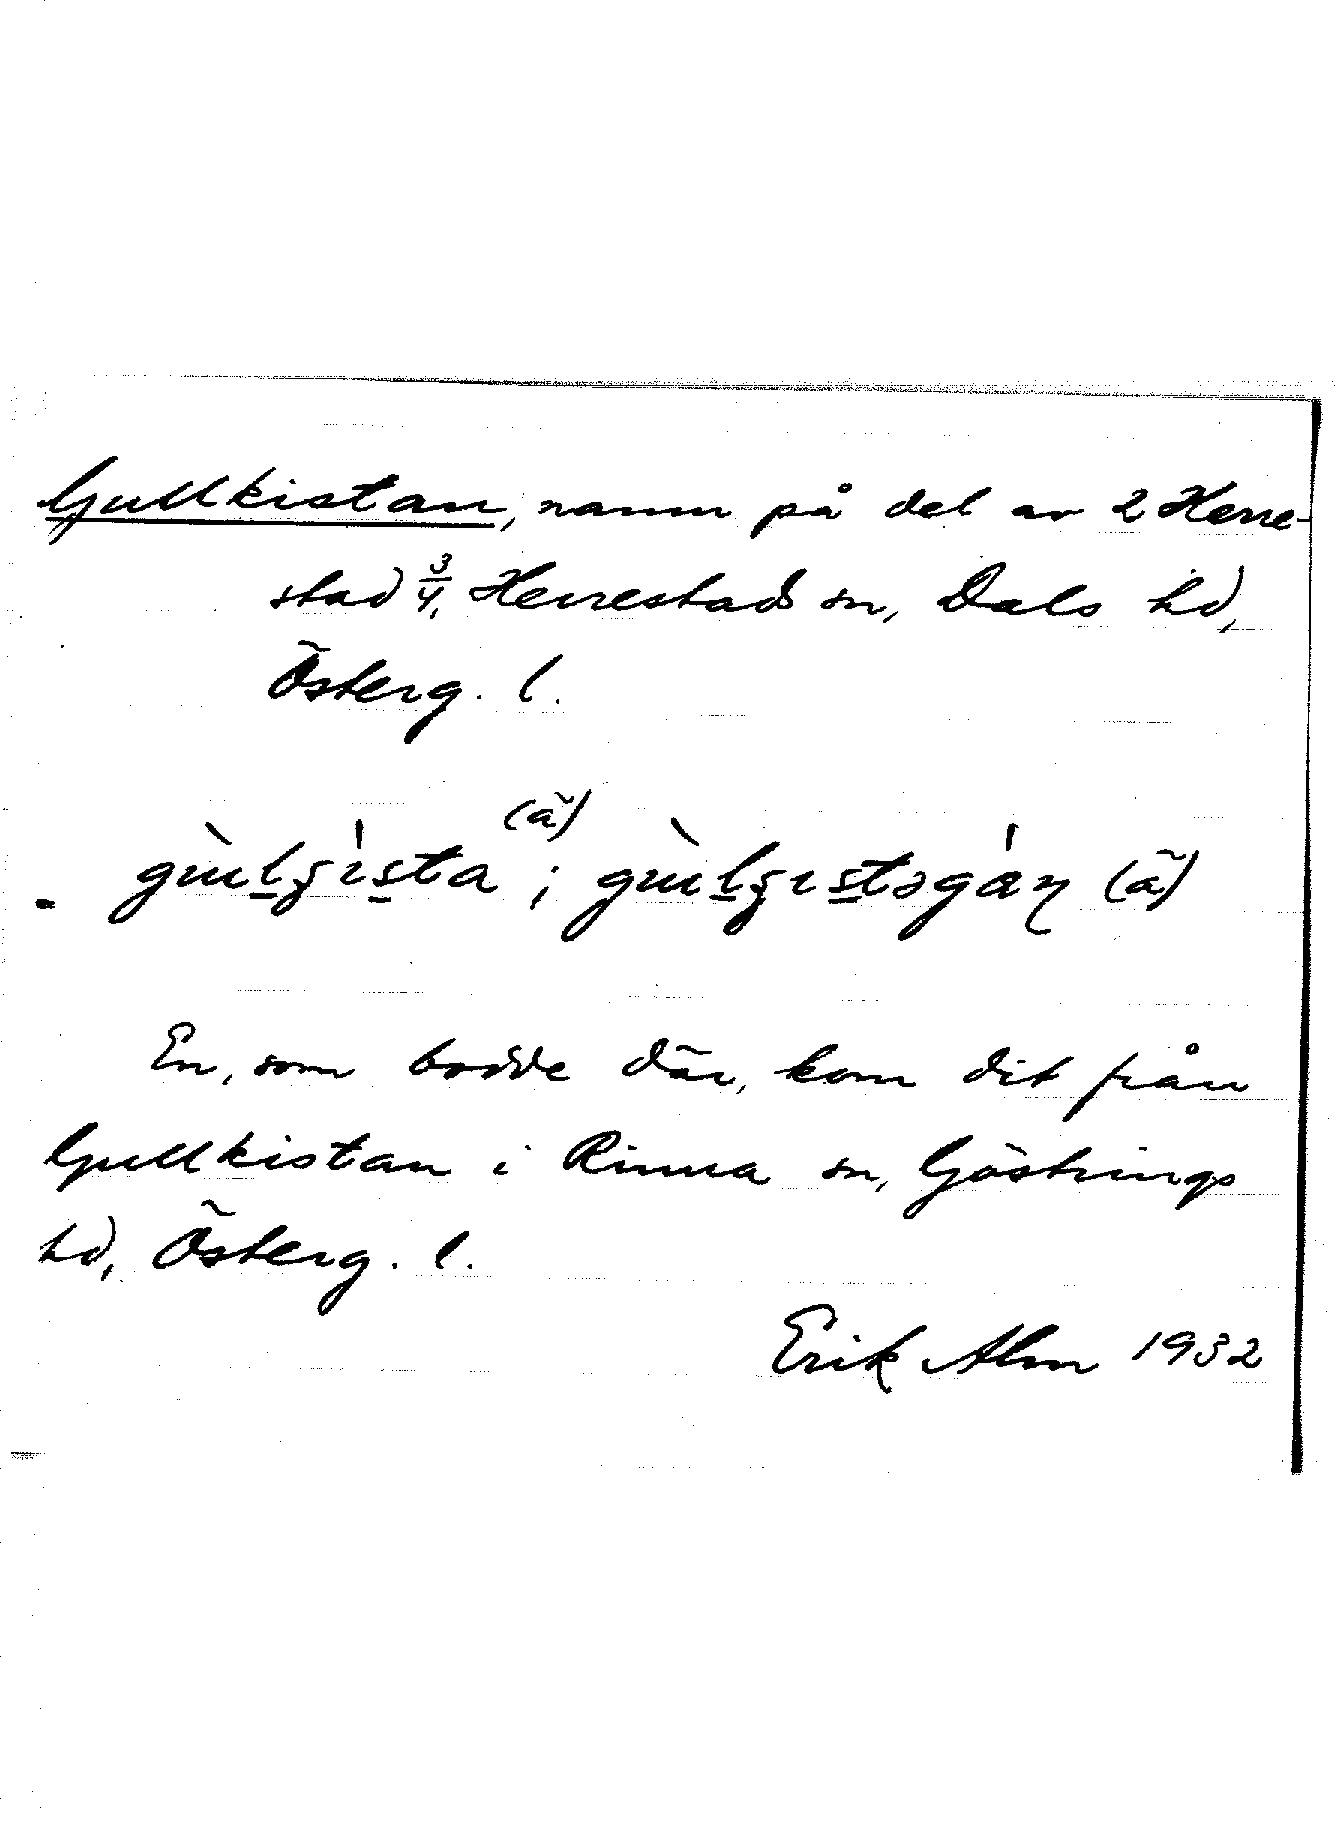 Gullkistan, namn på del av 2 Herre-
stad 3/4, Herrestads sn, Dals hd,
Österg. l.
(ã)
En, som bodde där, kom dit från
Gullkistan i Rinna sn, Göstrings
hd, Österg. l.
Erik Alm 1932